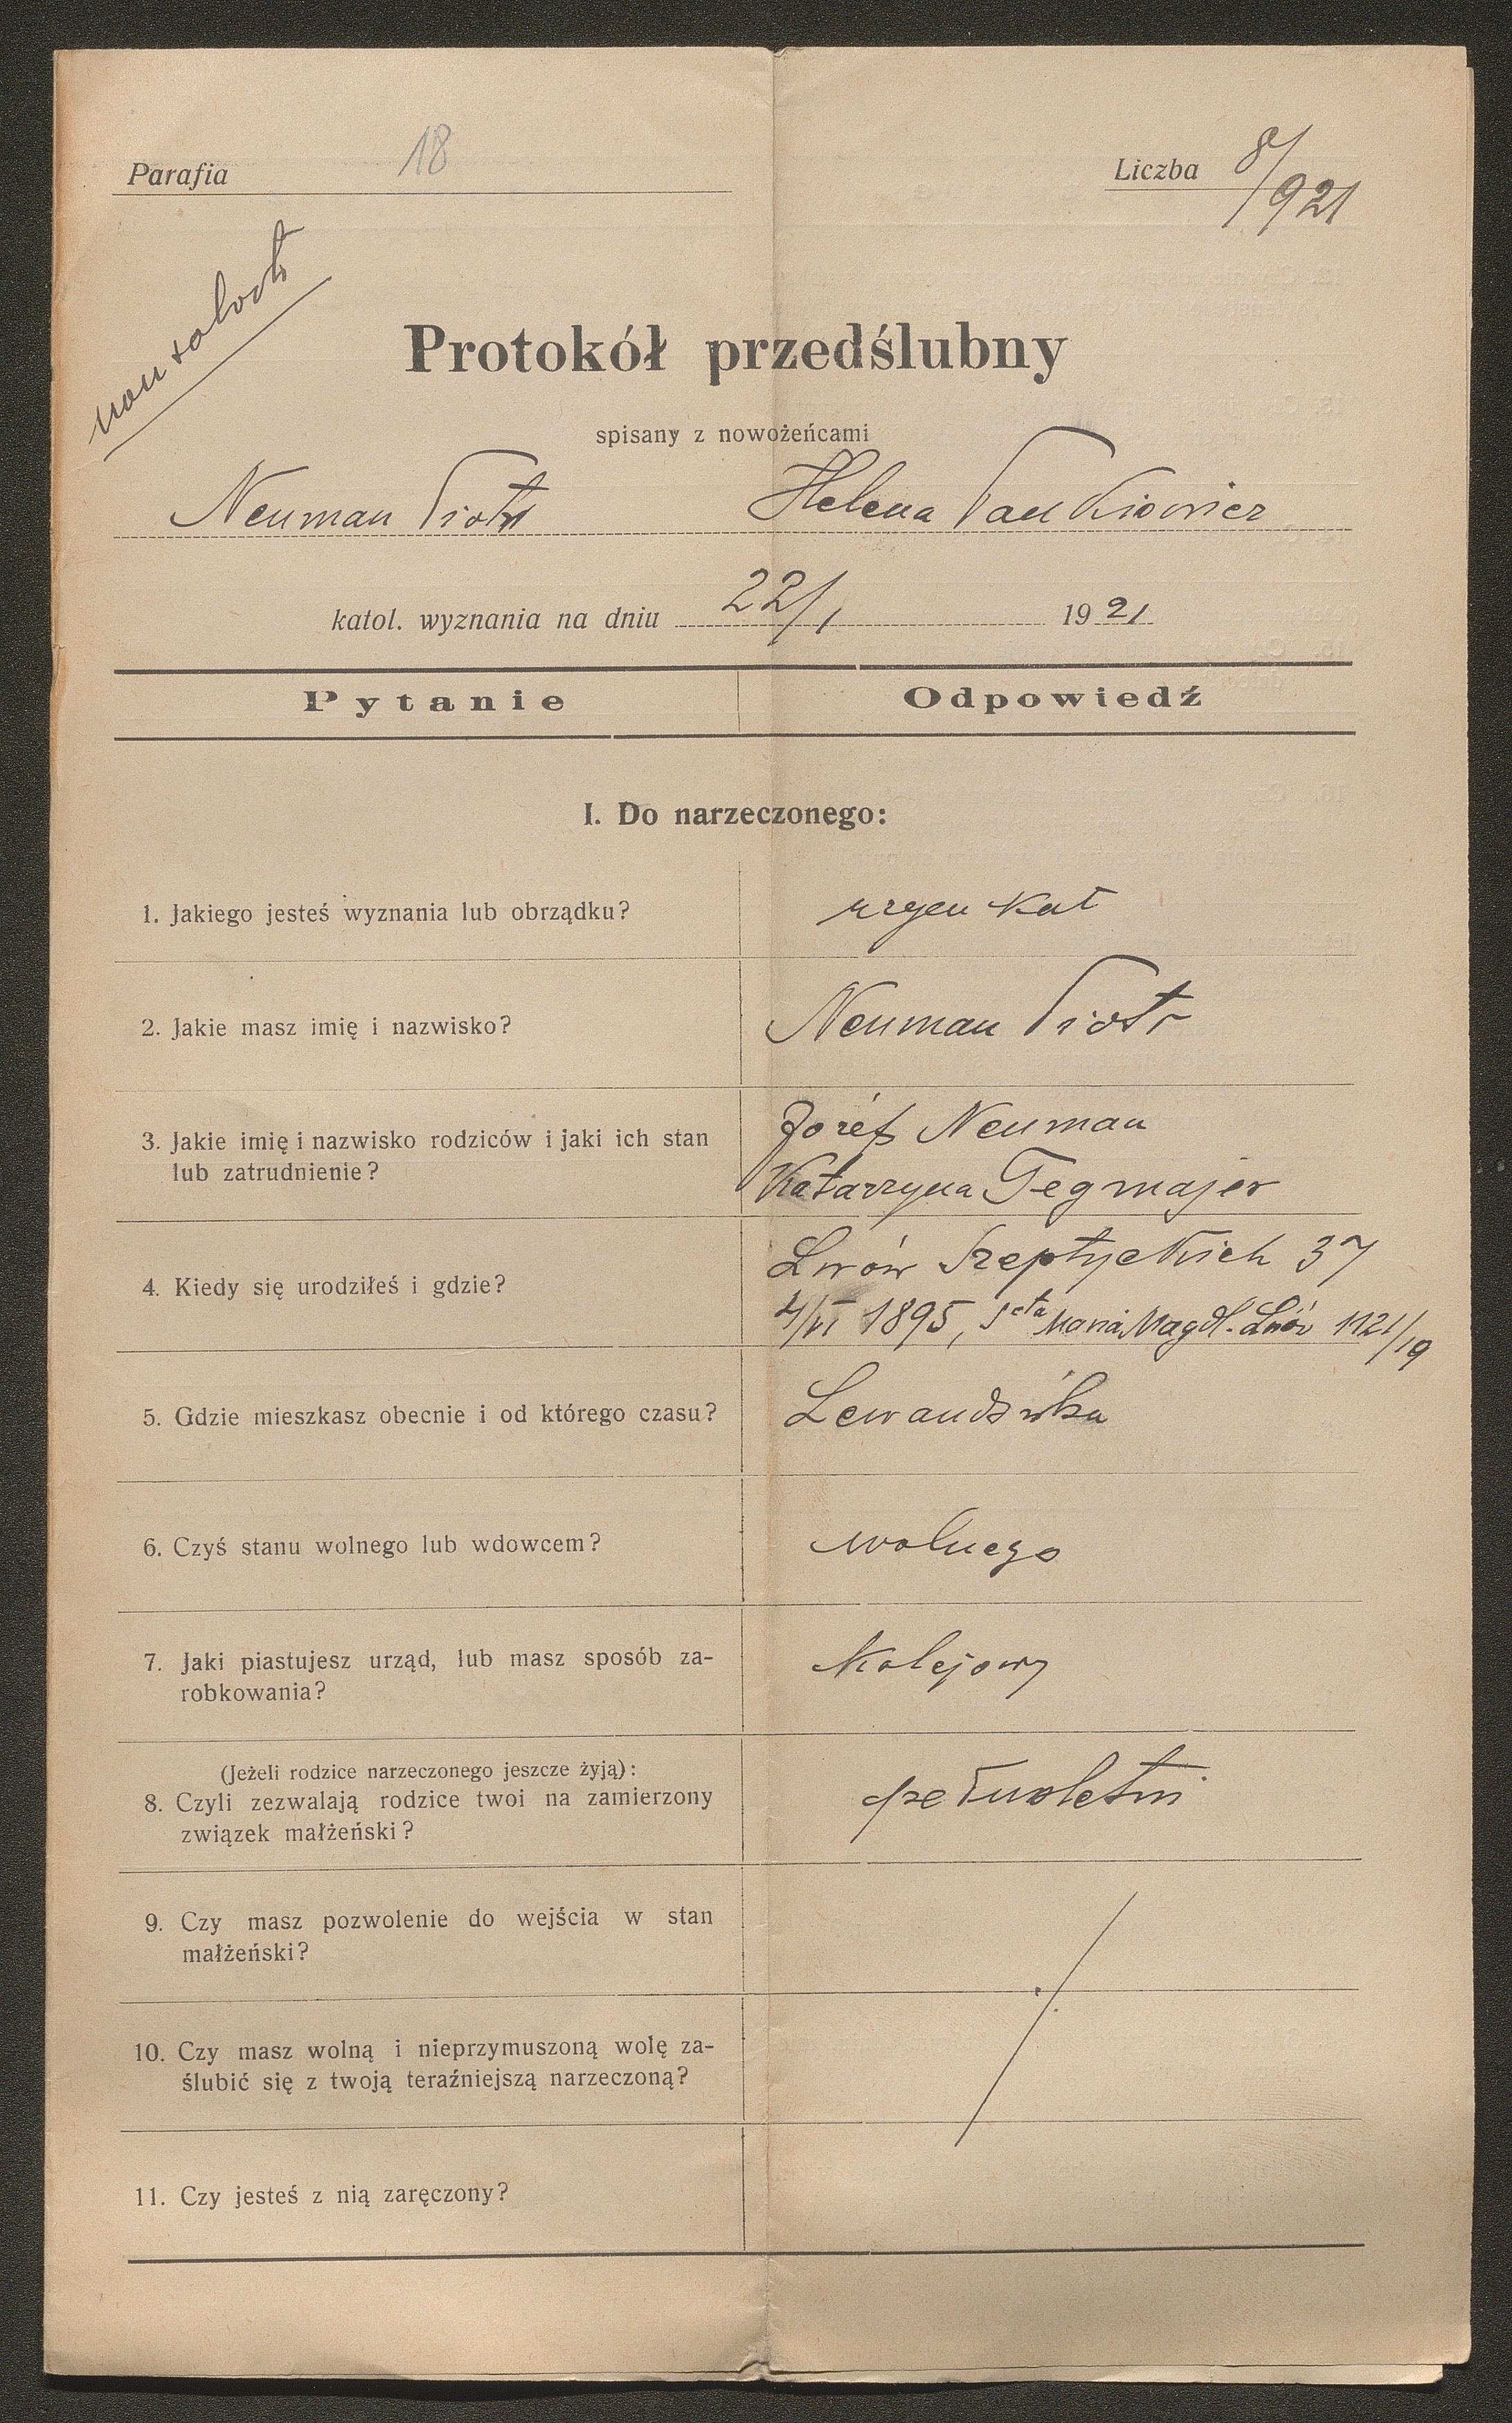 Parafia 18
Liczba 8/921
Protokół przedślubny
spisany z nowożeńcami
Neuman Piotr Helena Pankiewicz
katol. wyznania na dniu 22/1 1921
Pytanie Odpowiedź
I. Do narzeczonego:
1. Jakiego jesteś wyznania lub obrządku? rzym kat
2. Jakie masz imię i nazwisko? Neuman Piotr
3. Jakie imię i nazwisko rodziców i jaki ich stan
lub zatrudnienie?
Józef Neuman
Katarzyna Tegmajer
4. Kiedy się urodziłeś i gdzie?
Lwów Szeptyckich 37
4/VI 1895, Scta Maria Magdl. Lwów 1121/19
5. Gdzie mieszkasz obecnie i od którego czasu? Lewandówka
6. Czyś stanu wolnego lub wdowcem? wolnego
7. Jaki piastujesz urząd, lub masz sposób za-
robkowania?
Kolejowy
(Jeżeli rodzice narzeczonego jeszcze żyją):
8. Czyli zezwalają rodzice twoi na zamierzony
związek małżeński?
pełnoletni
9. Czy masz pozwolenie do wejścia w stan
małżeński?
10. Czy masz wolną i nieprzymuszoną wolę za-
ślubić się z twoją teraźniejszą narzeczoną?
11. Czy jesteś z nią zaręczony?